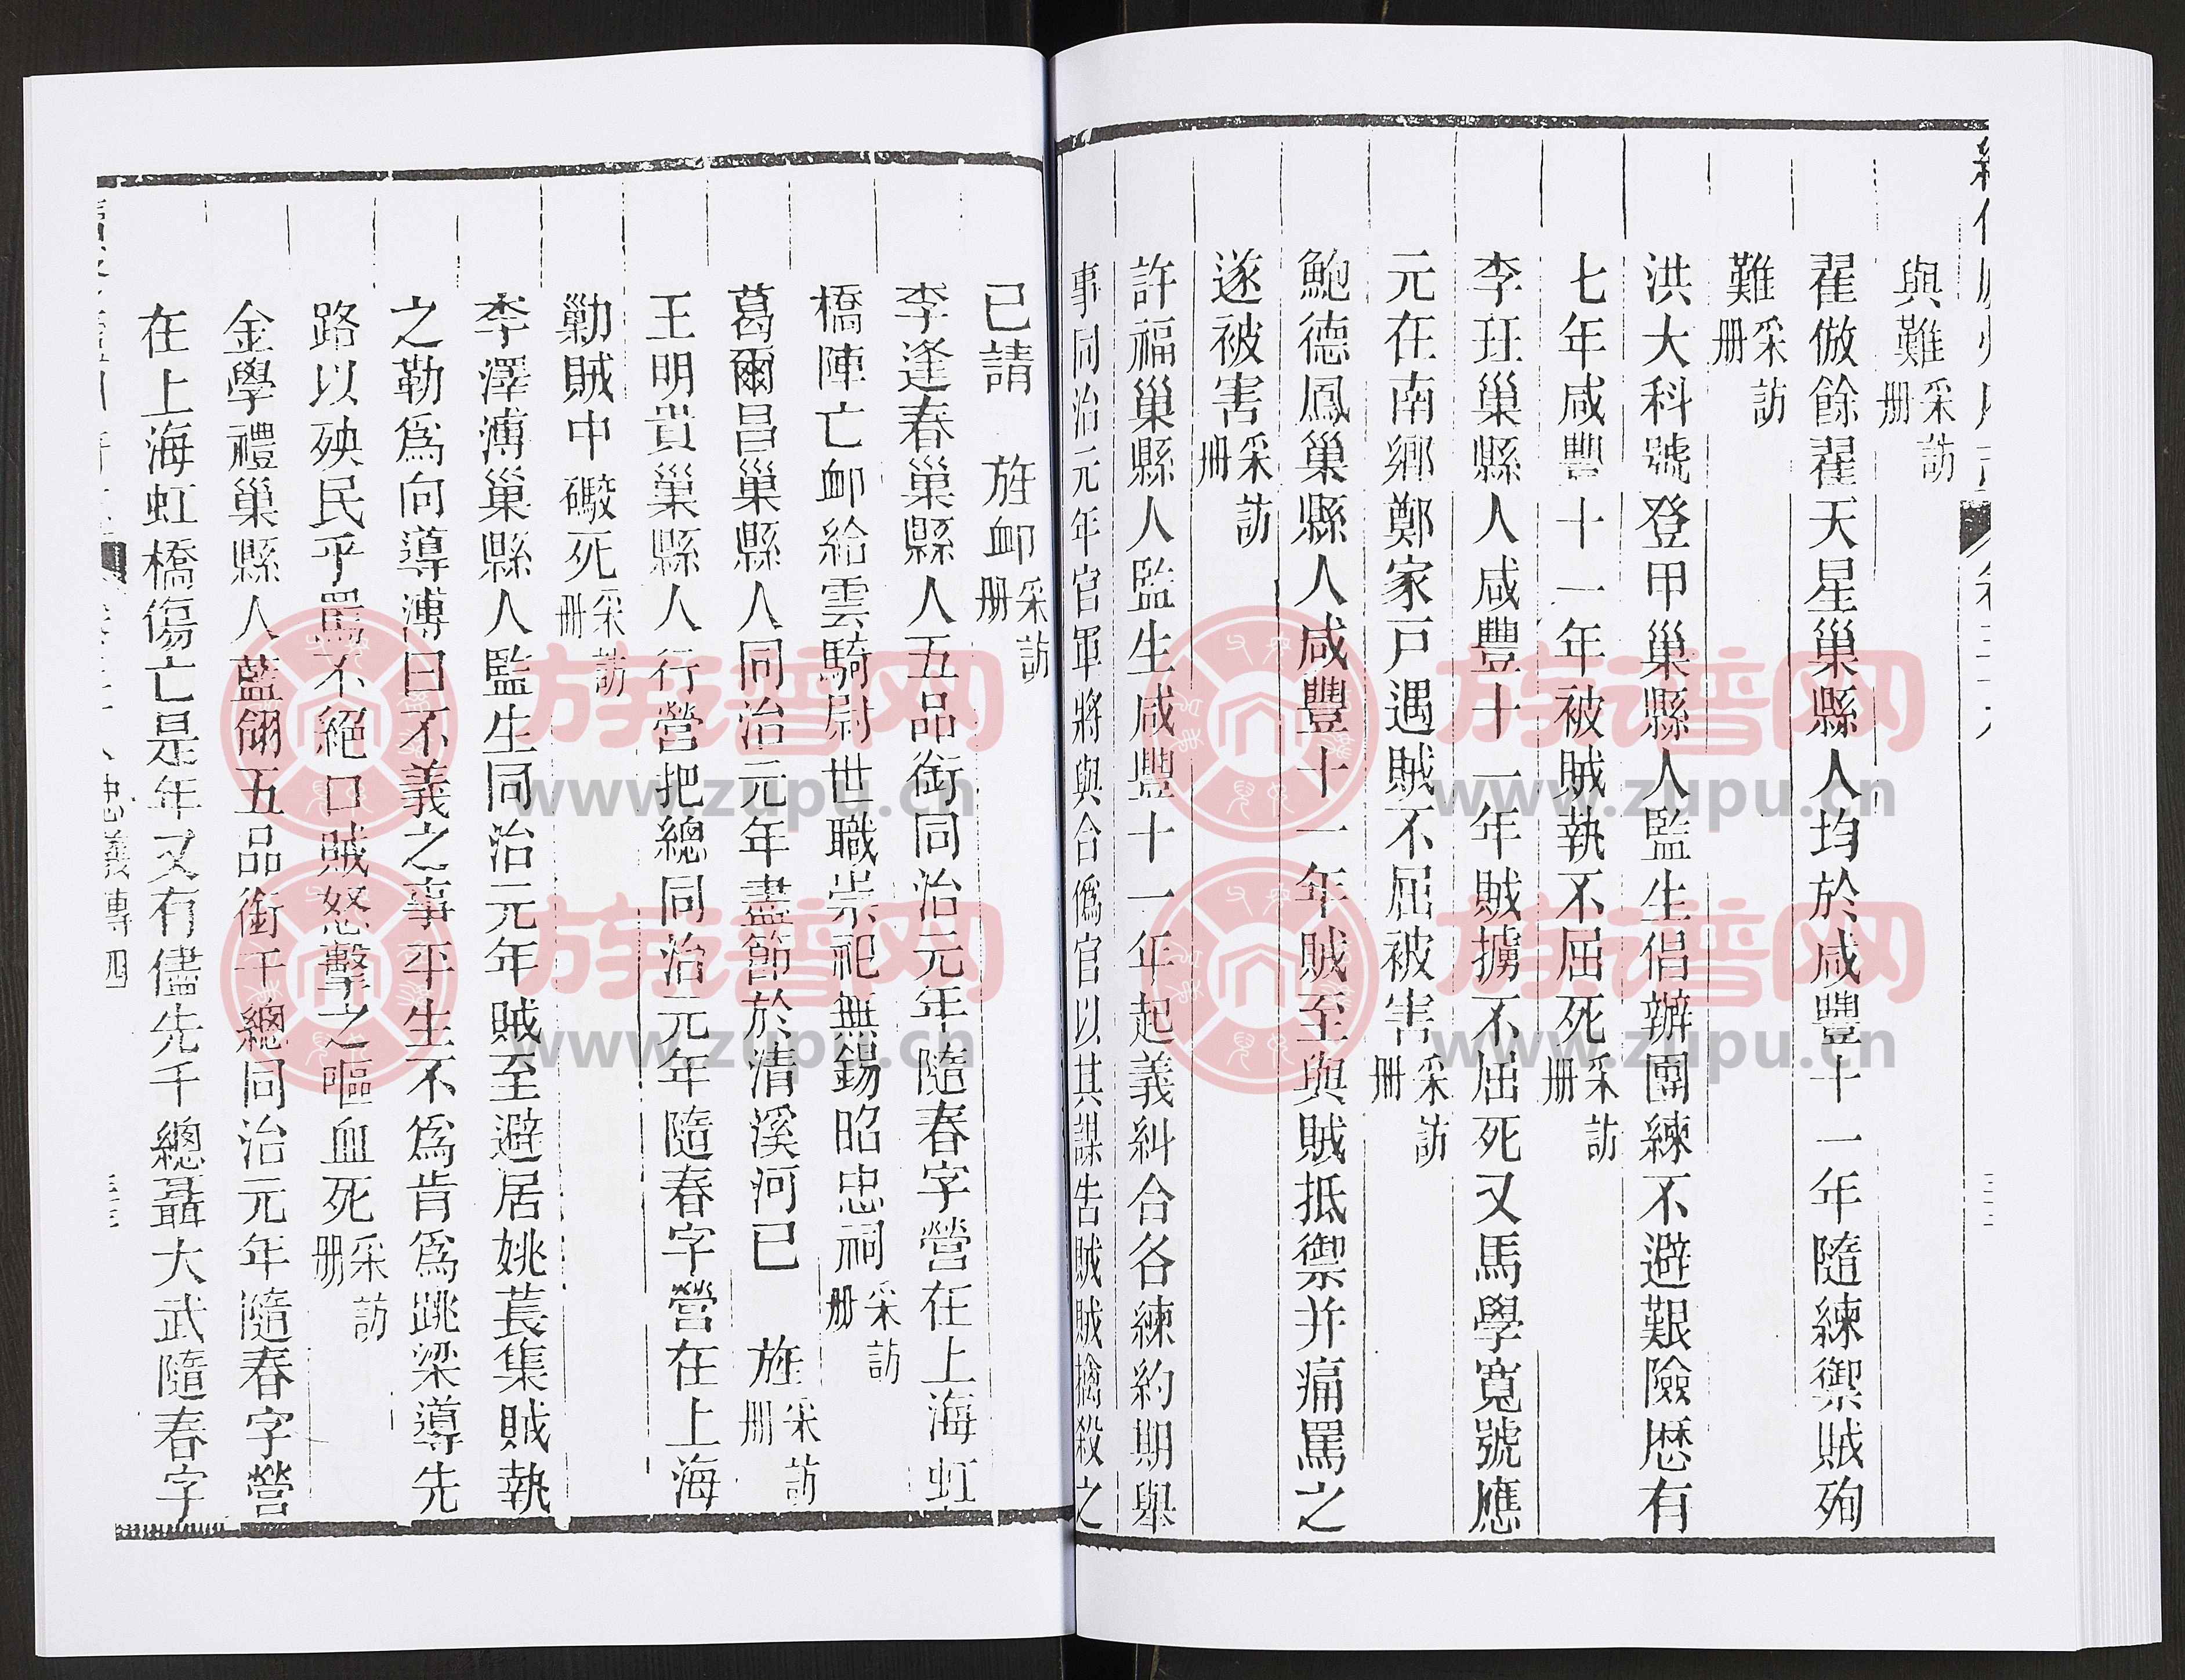 與難采訪冊
翟倣餘翟天星巢縣人均於咸豐十一年隨練禦賊殉
難采訪冊
洪大科號登甲巢縣人監生倡辦團練不避艱險歷有
七年咸豐十一年被賊執不屈死采訪冊
李玨巢縣人咸豐十一年賊擄不屈死又馬學寬號應
元在南鄉鄭家戸遇賊不屈被害采訪冊
鮑德鳳巢縣人咸豐十一年賊至與賊抵禦并痛罵之
遂被害采訪冊
許福巢縣人監生咸豐十一年起義糾合各練約期舉
事同治元年官軍將與合僞官以其謀告賊賊擒殺之
已請 旌卹采訪冊
李逢春巢縣人五品銜同治元年隨春字營在上海虹
橋陣亡卹給雲騎尉世職崇祀無錫昭忠祠采訪冊
葛爾昌巢縣人同治元年盡節於清溪河已 旌采訪冊
王明貴巢縣人行營把總同治元年隨春字營在上海
勦賊中礮死采訪冊
李澤溥巢縣人監生同治元年賊至避居姚萇集賊執
之勒爲向導溥曰不義之事平生不爲肯爲跳梁導先
路以殃民乎罵不絕口賊怒擊之嘔血死采訪冊
金學禮巢縣人藍翎五品銜千總同治元年隨春字營
在上海虹橋傷亡是年又有儘先千總聶大武隨春字
忠義傳四
族谱网
www.zupu.cn
族谱网
www.zupu.cn
族谱网
www.zupu.cn
族谱网
www.zupu.cn